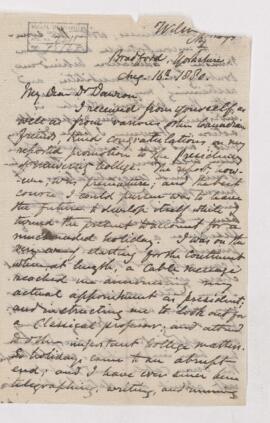 Bradford, Yorkshire,
Aug. 16th 1880.
My Dear Dr Dawson,
I received from yourself, as
well as from various other Canadian
friends kind congratulations on my
reported promotion to the presidency
of college. The report, how-
ever, was premature, and the best
course I could pursue was to leave
the future to develop itself while I
turned the present to account for a
much needed holiday. I was on the
very starting for the Continent
when at length, a Cable message
reached me announcing my
actual appointment as president;
and instructing me to look out for
a Classical professor, and attend
to other important College matters.
So holidays came to an abrupt
end; and I have ever since been
telegraphing, writing, and running